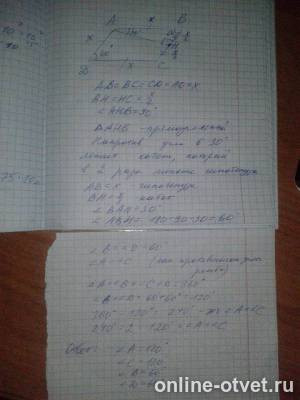 A x B
x
60°
Д x C
AB=BC=CD=AD=x
BH=HC=x/2
∠AHB=90°
ΔAHB - прямоугольный
Напротив угла в 30°
лежит катет, который
в 2 раза меньше гипотенузы
AB=x гипотенуза
BH=x/2 катет
∠BAH=30°
∠ABH=180-90-30=60°
∠B=∠D=60°
∠A=∠C (как противолежащие углы
ромба)
∠A+∠B+∠C+∠D=360°
∠B+∠D=60+60=120°
360°-120°=240° - ∠A+∠C
240°:2=120°=∠A=∠C
Ответ: ∠A=120°
∠C=120
∠B=60°
∠D=60°
online-otvet.ru